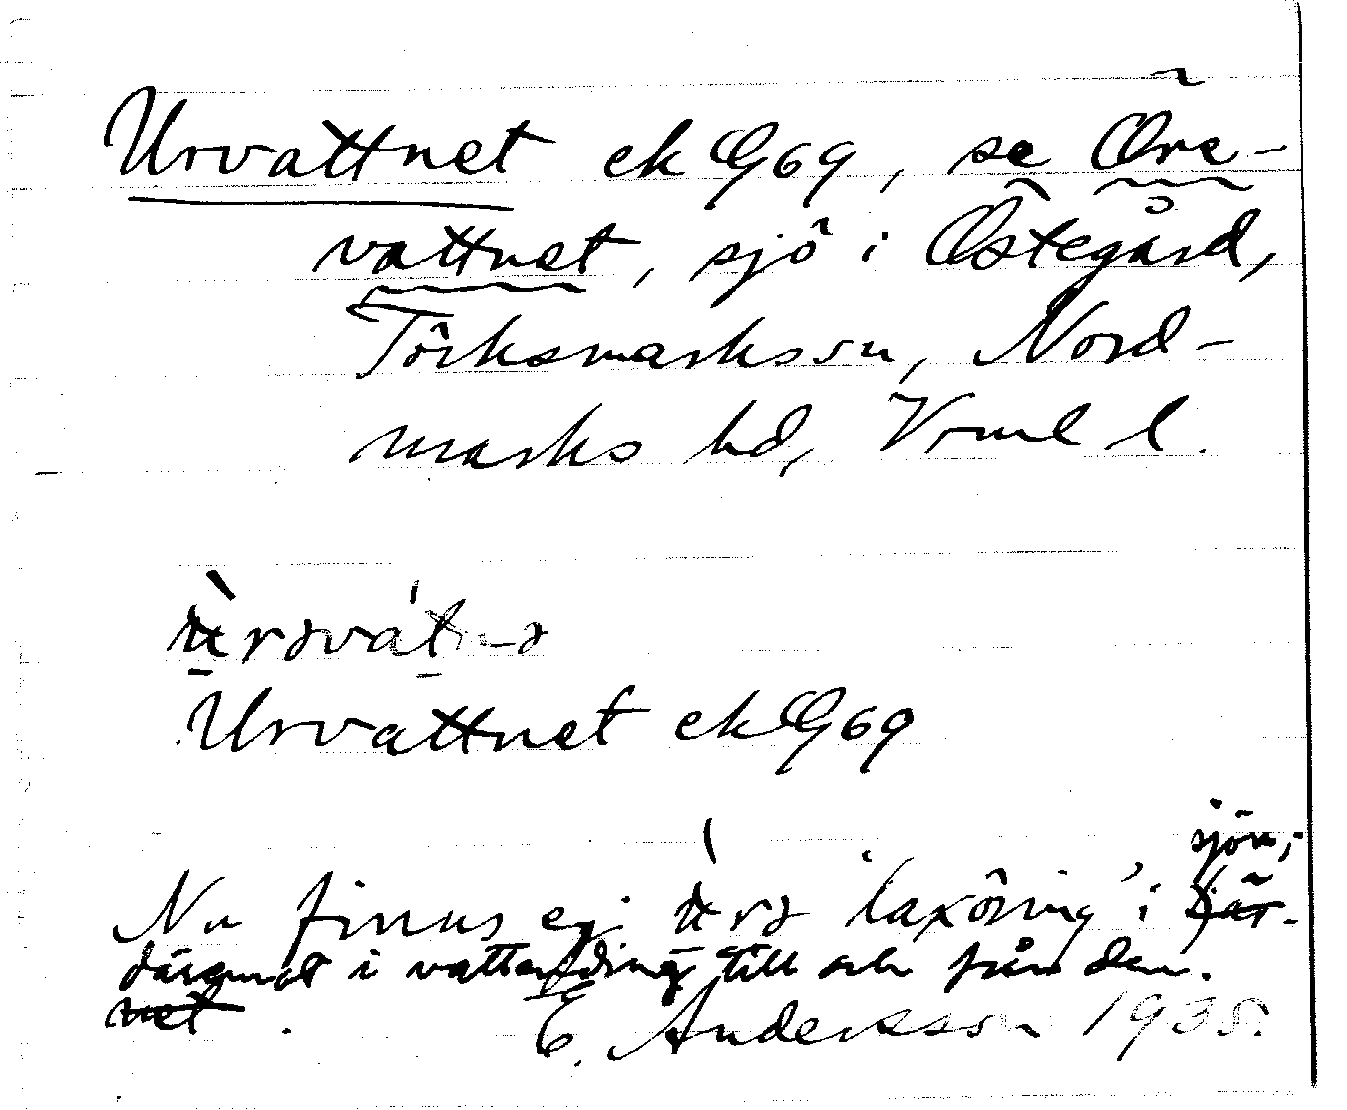 Urvattnet ek G69, se Öre-
vattnet, sjö i Östegård,
Törksmarks sn, Nord-
marks hd, Vrml l.
ùrəvátnə
Urvattnet ek G69
Nu finns ej ùrə 'laxöring' i sjön;
däremot i vattendrag till och från den.
E. Andersson 1935.